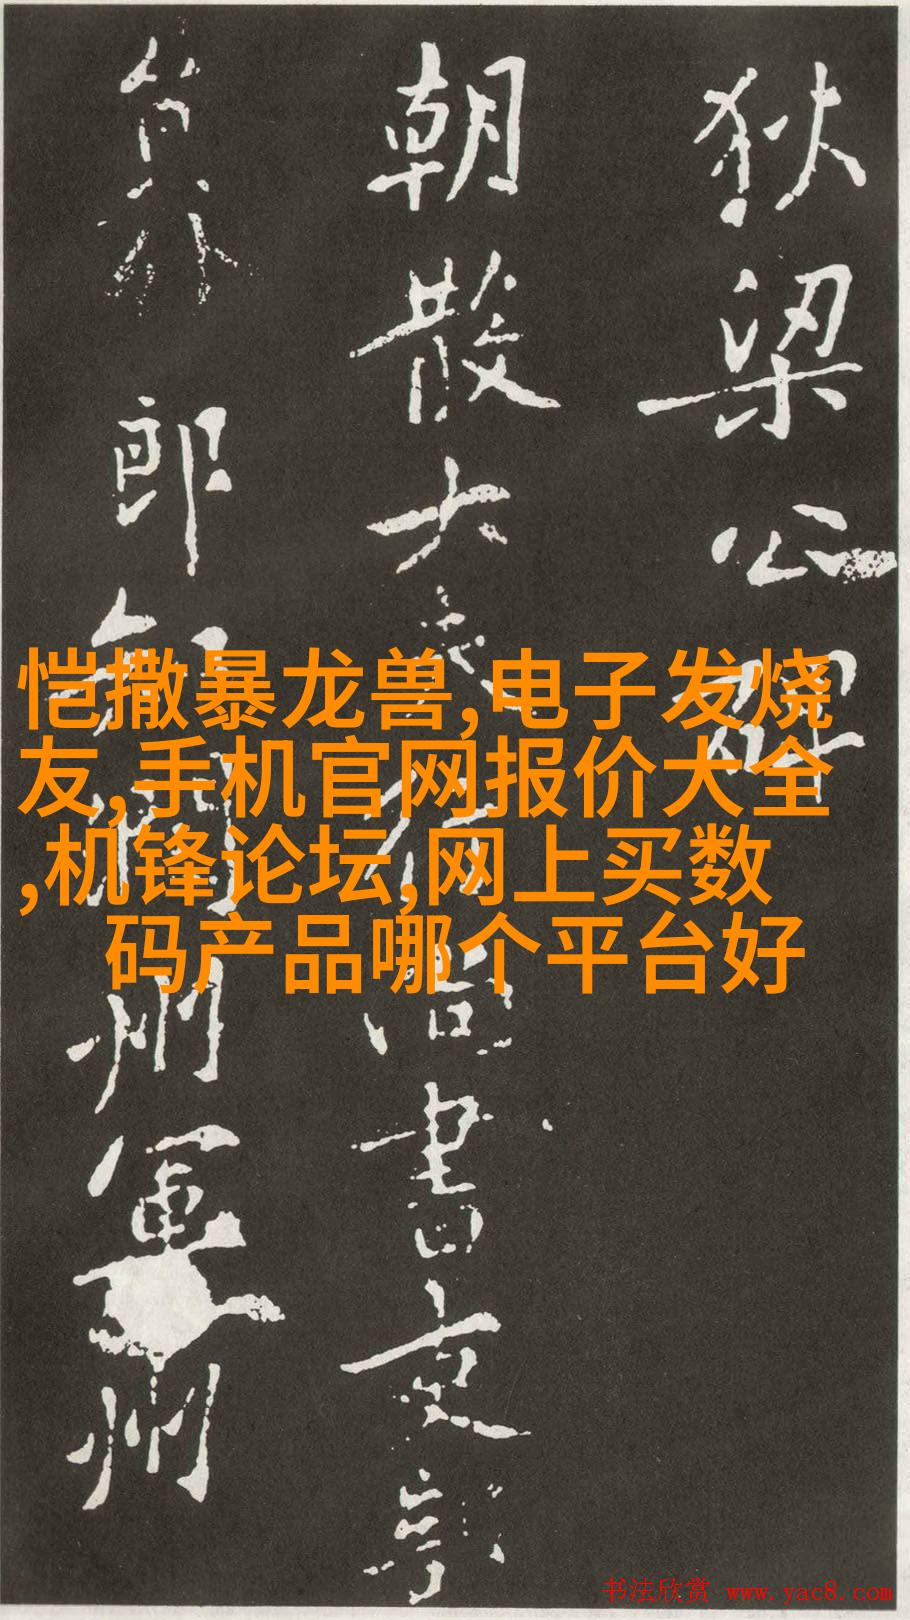 狄梁公碑
朝散大夫行尚書吏部
員外郎知潤州軍州
恺撒暴龙兽,电子发烧
友,手机官网报价大全
,机锋论坛,网上买数
码产品哪个平台好
书法欣赏 www.yac8.com